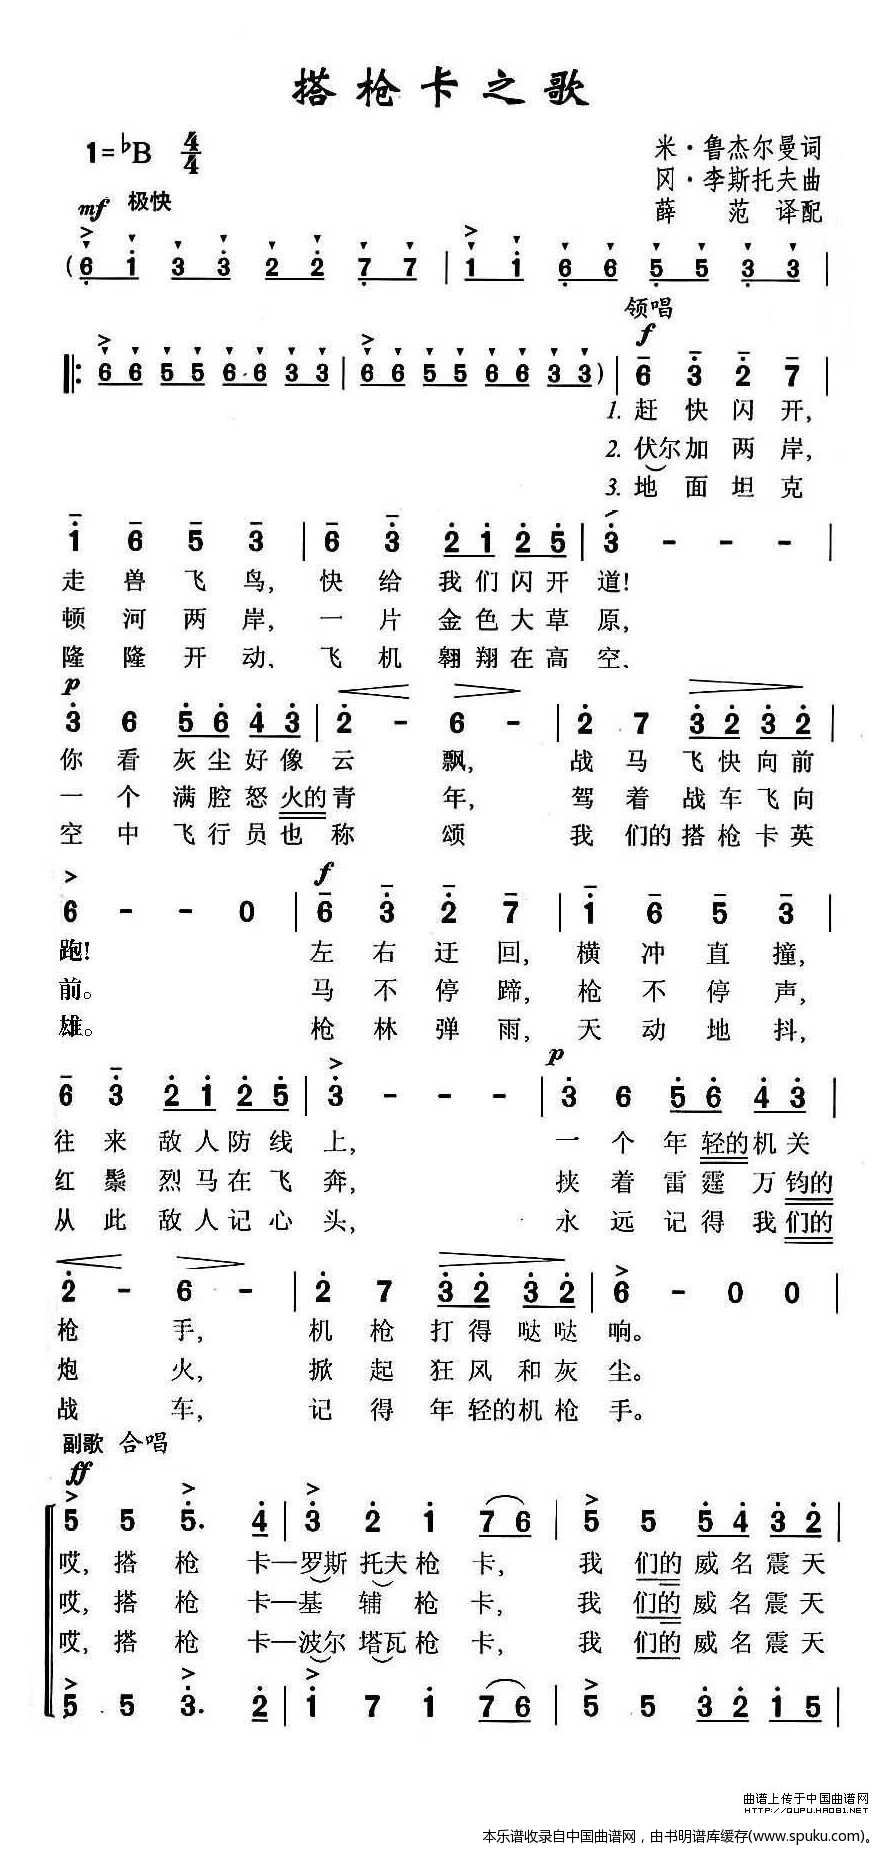 搭枪卡之歌
1=♭B 4/4
米·鲁杰尔曼词
冈·李斯托夫曲
薛 范 译配
mf 极快
(6 1 3 3 2 2 7 7 | 1 1 6 6 5 5 3 3 |
领唱
f
|: 6 6 5 5 6 6 3 3 | 6 6 5 5 6 6 3 3) | 6 3 2 7 |
1. 赶快闪开,
2. 伏尔加两岸,
3. 地面坦克
1 6 5 3 | 6 3 2 1 2 5 | 3 - - - |
走兽飞鸟, 快给我们闪开道!
顿河两岸, 一片金色大草原,
隆隆开动, 飞机翱翔在高空、
p
3 6 5 6 4 3 | 2 - 6 - | 2 7 3 2 3 2 |
你看灰尘好像云飘, 战马飞快向前
一个满腔怒火的青年, 驾着战车飞向
空中飞行员也称颂 我们的搭枪卡英
f
6 - - 0 | 6 3 2 7 | 1 6 5 3 |
跑! 左右迂回, 横冲直撞,
前。 马不停蹄, 枪不停声,
雄。 枪林弹雨, 天动地抖,
p
6 3 2 1 2 5 | 3 - - - | 3 6 5 6 4 3 |
往来敌人防线上, 一个年轻的机关
红鬃烈马在飞奔, 挟着雷霆万钧的
从此敌人记心头, 永远记得我们的
2 - 6 - | 2 7 3 2 3 2 | 6 - 0 0 |
枪手, 机枪打得哒哒响。
炮火, 掀起狂风和灰尘。
战车, 记得年轻的机枪手。
副歌 合唱
ff
5 5 5. 4 | 3 2 1 7 6 | 5 5 5 4 3 2 |
哎, 搭枪卡—罗斯托夫枪卡, 我们的威名震天
哎, 搭枪卡—基辅枪卡, 我们的威名震天
哎, 搭枪卡—波尔塔瓦枪卡, 我们的威名震天
5 5 3. 2 | 1 7 1 7 6 | 5 5 3 2 1 5 |
曲谱上传于中国曲谱网
HTTP://QUPU.HAO81.NET
本乐谱收录自中国曲谱网，由书明谱库缓存(www.spuku.com)。